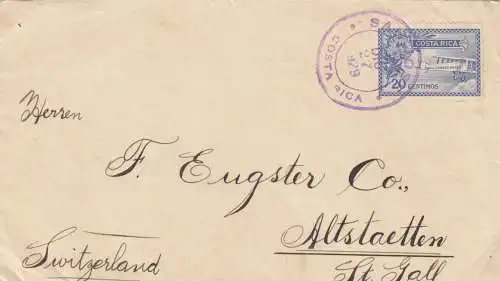 COSTA RICA
20 CENTIMOS
SA
COSTA RICA
Herren
F. Eugster Co.,
Altstaetten
Switzerland
St. Gall